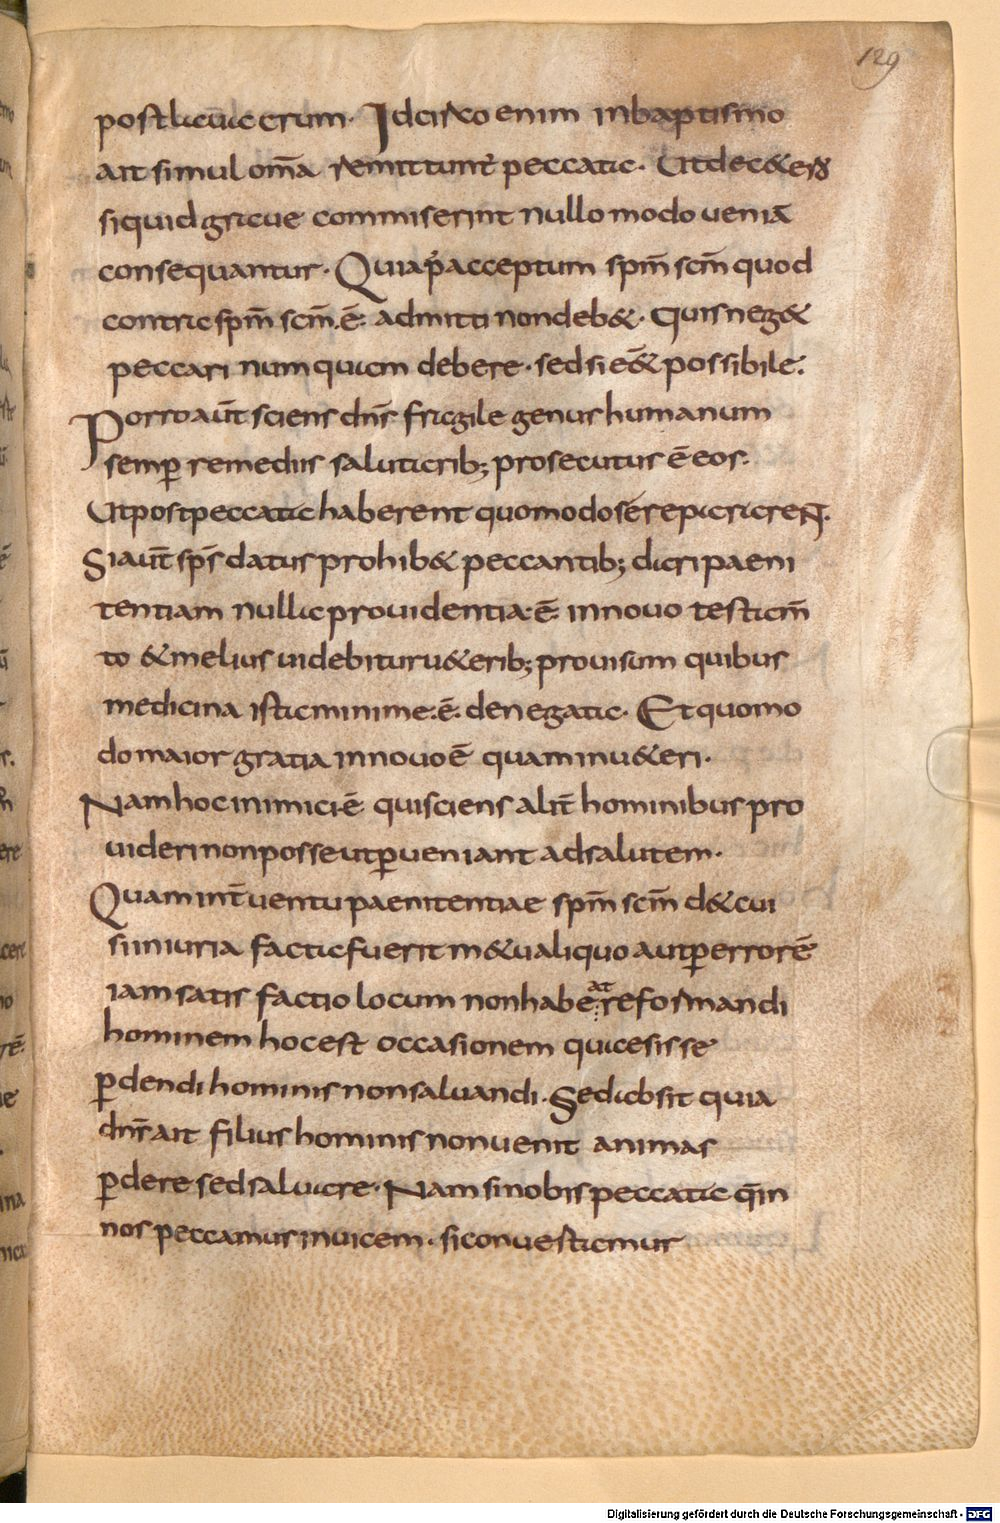 129
postlauacrum· Idcirco enim inbaptismo
ait simul om̄a remittunt᷑ peccata· Utdec&erꝰ
siquid graue commiserint nullo modo ueniā
consequantur· Quiap̄acceptum sp̄m sc̄m quod
contra sp̄m sc̄m·ē· admitti nondeb&· Quis neg&
peccari numquam debere· sed si e&̄ possibile·
Porro aūt sciens dn̄s fragile genus humanum
semꝑ remediis salutarib; prosecutus ē eos·
Ut postpeccata haberent quomodo sērepararen̄t·
Siaūt sp̄s datus prohib& peccantib; dari paeni
tentiam nulla prouidentia·ē· innouo testam̄
to &melius uidebitur u&erib; prouisum quibus
medicina ista minime·ē· denegata· Et quomo
do maior gratia innouo ē quam inu&eri·
Nam hoc inimici ē quisciens alit̄ hominibus pro
uideri nonposse utꝑueniant adsalutem·
Quam int̄uentu paenitentiae sp̄m sc̄m d& cui
si iniuria facta fuerit m&u aliquo aut ꝑ errorē
iam satis factio locum non habeat reformandi
hominem hoc est occasionem quaesisse
ꝑdendi hominis non saluandi· Sed absit quia
dn̄s ait filius hominis non uenit animas
ꝑdere sed saluare· Nam si nobis peccata q̄ in
nos peccamus inuicem· si conuestamus
Digitalisierung gefördert durch die Deutsche Forschungsgemeinschaft - DFG